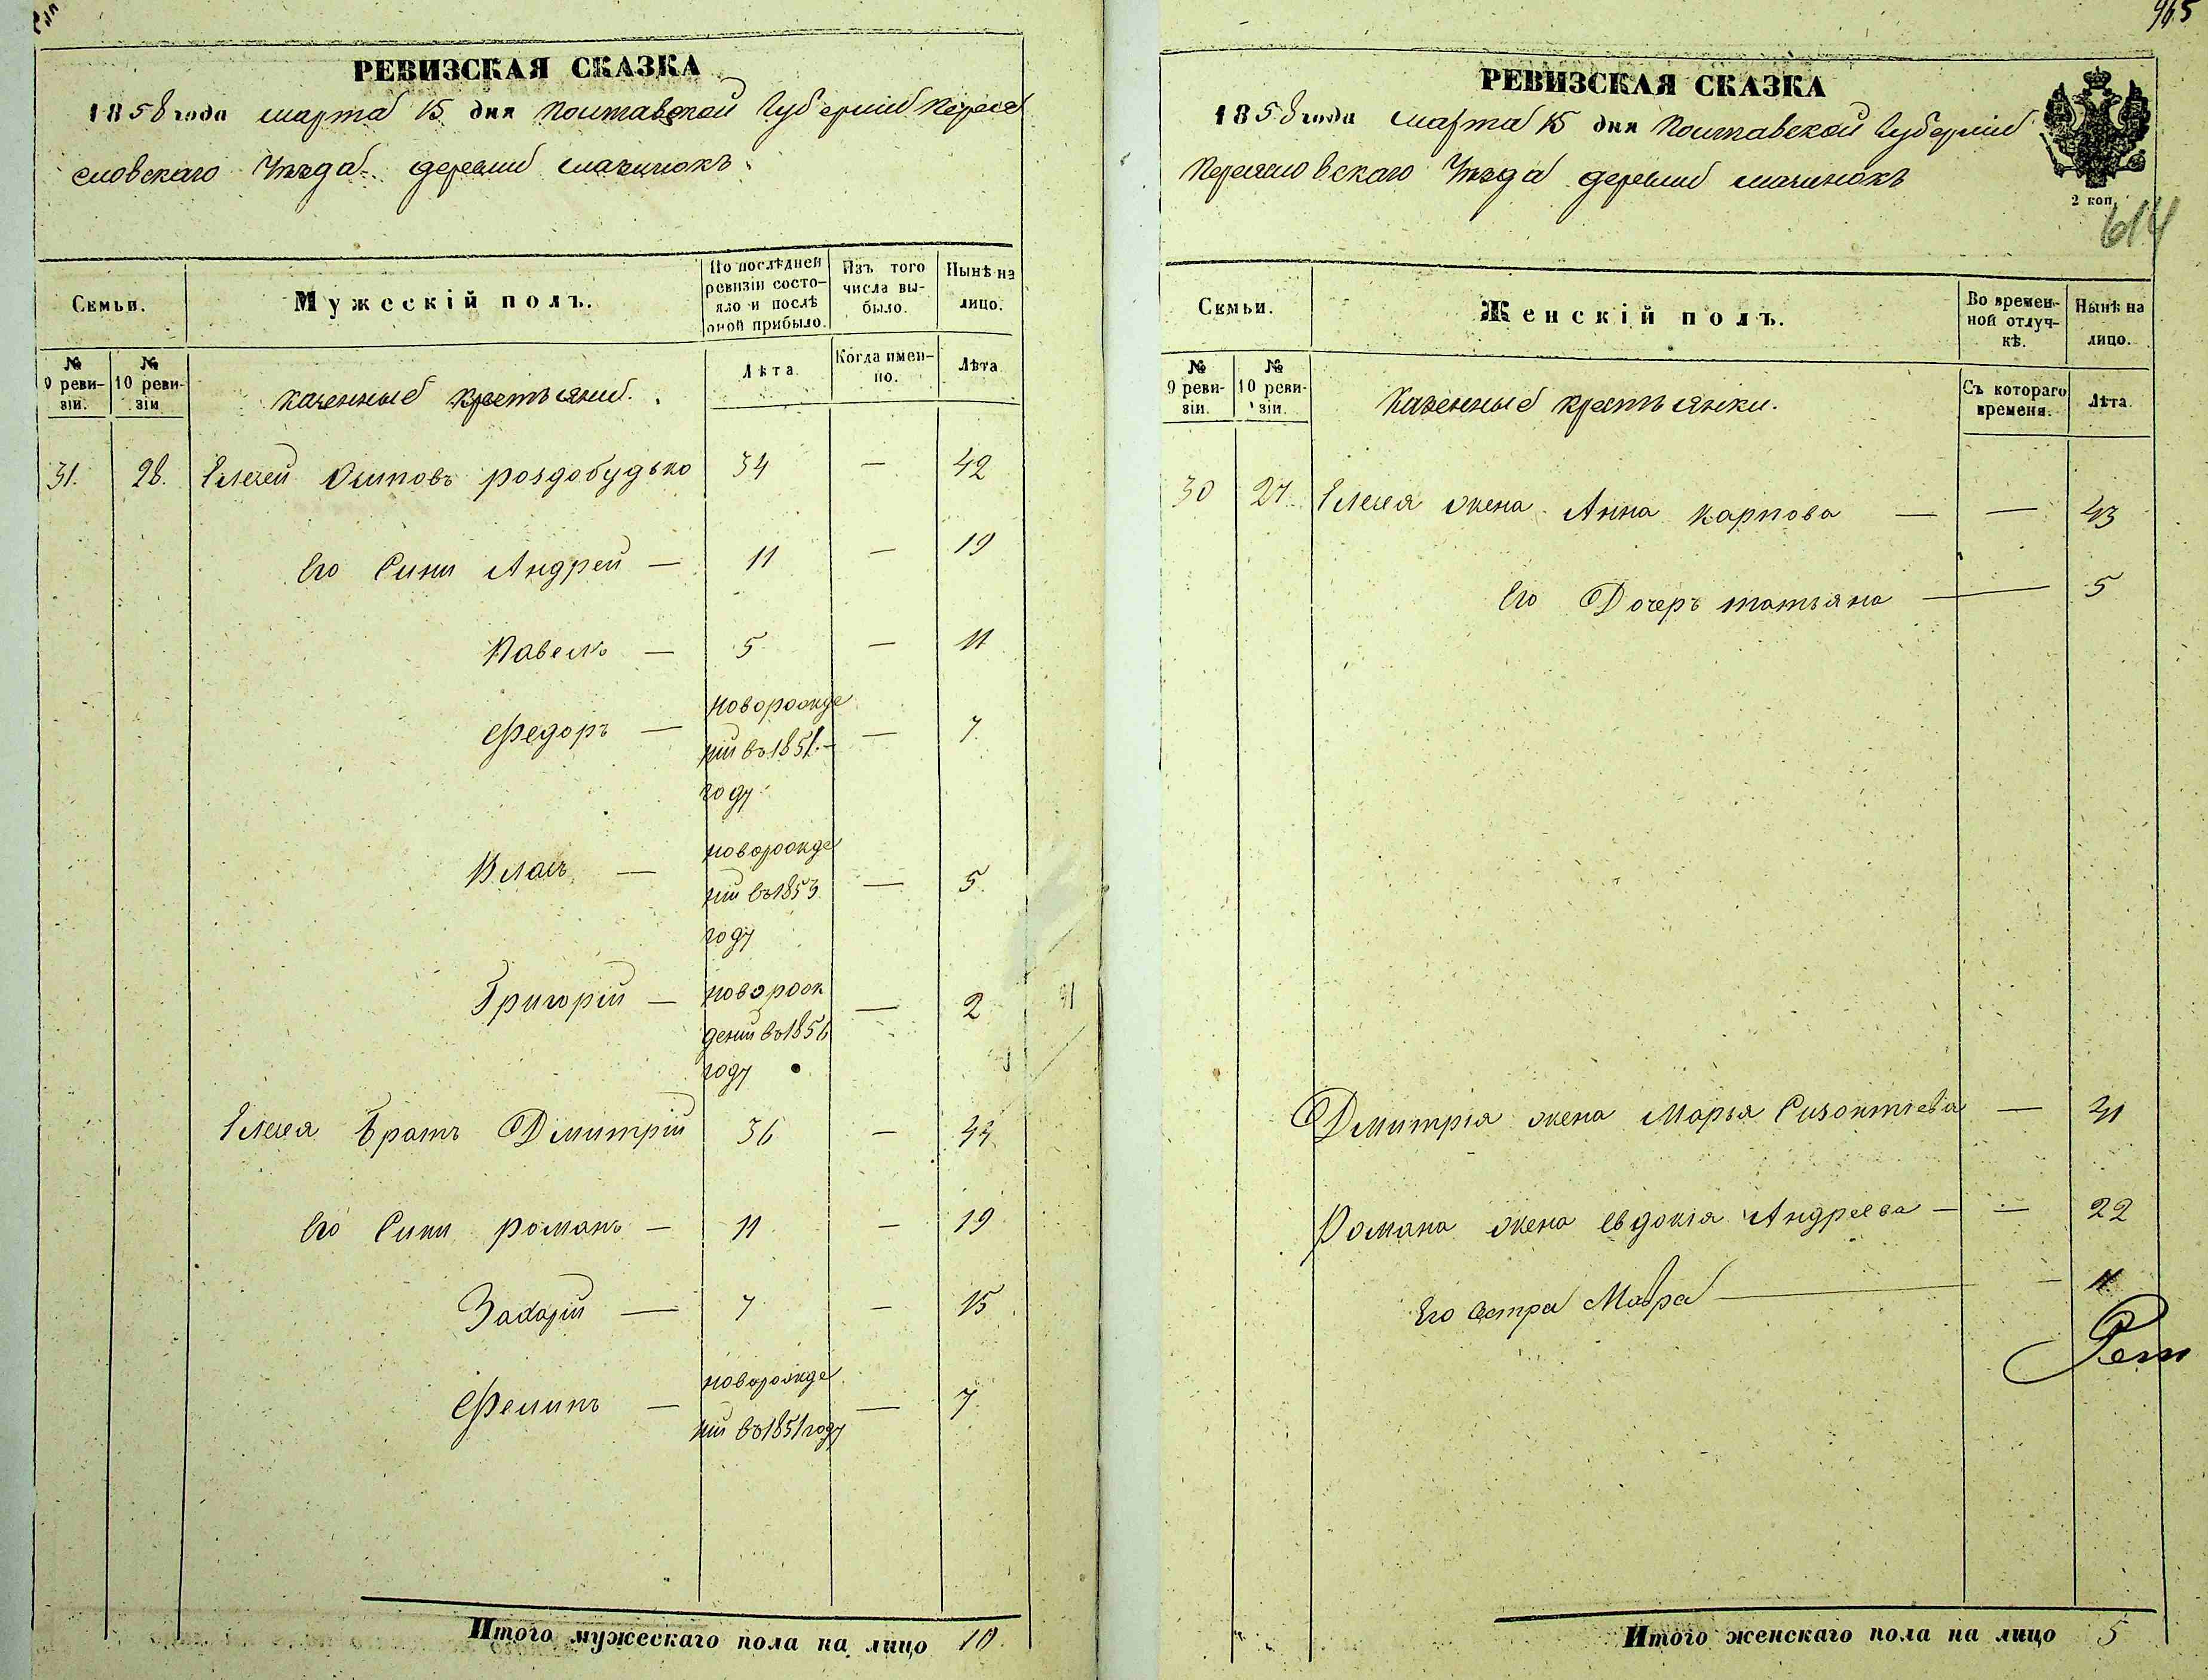 РЕВИЗСКАЯ СКАЗКА
1858 года марта 15 дня Полтавской Губерниі Перея
словскаго Уезда деревни
Семьи.
Мужескій полъ.
По послѣдней ревизіи состояло и послѣ оной прибыло.
Изъ того числа выбыло.
Нынѣ на лицо.
№ 9 ревизіи.
№ 10 ревизіи
казенные крестьяне.
Лѣта
Когда именно.
Лѣта
31. 28. Елисей Осиповъ роздобудько 34 — 42
Его Сини Андрей — 11 — 19
Павелъ — 5 — 11
Федоръ — новорожде
ній въ 1851. — 7
году
Власъ — новорожде
ній въ 1853 — 5.
году
Григорій — новорож — 2
деній въ 1856
году
Елисея братъ Дмитрій 36 — 44
Его Сини романъ — 11 — 19
Захарій — 7 — 15
Филипъ — новорожде — 7.
ній въ 1851 году
Итого мужескаго пола на лицо 10.
965
РЕВИЗСКАЯ СКАЗКА
1858 года марта 15 дня Полтавской Губерніи
Переясловскаго Уезда деревни
2 коп.
614
Семьи.
Женскій полъ.
Во временной отлучкѣ.
Нынѣ на лицо.
№ 9 ревизіи.
№ 10 ревизіи.
Казенные крестьянки.
Съ котораго временя.
Лѣта
30 27. Елисея жена Анна карпова — — 43
Его Дочеръ татьяна — 5
Дмитрія жена Марья — 41
Романа жена евдокія Андреева — — 22
Его сестра Мавра — — 11
Итого женскаго пола на лицо 5